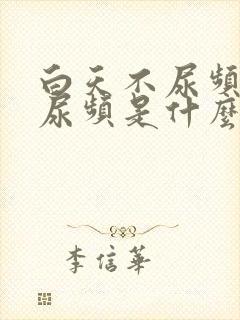 白天不尿頻
尿頻是什麼
李信華